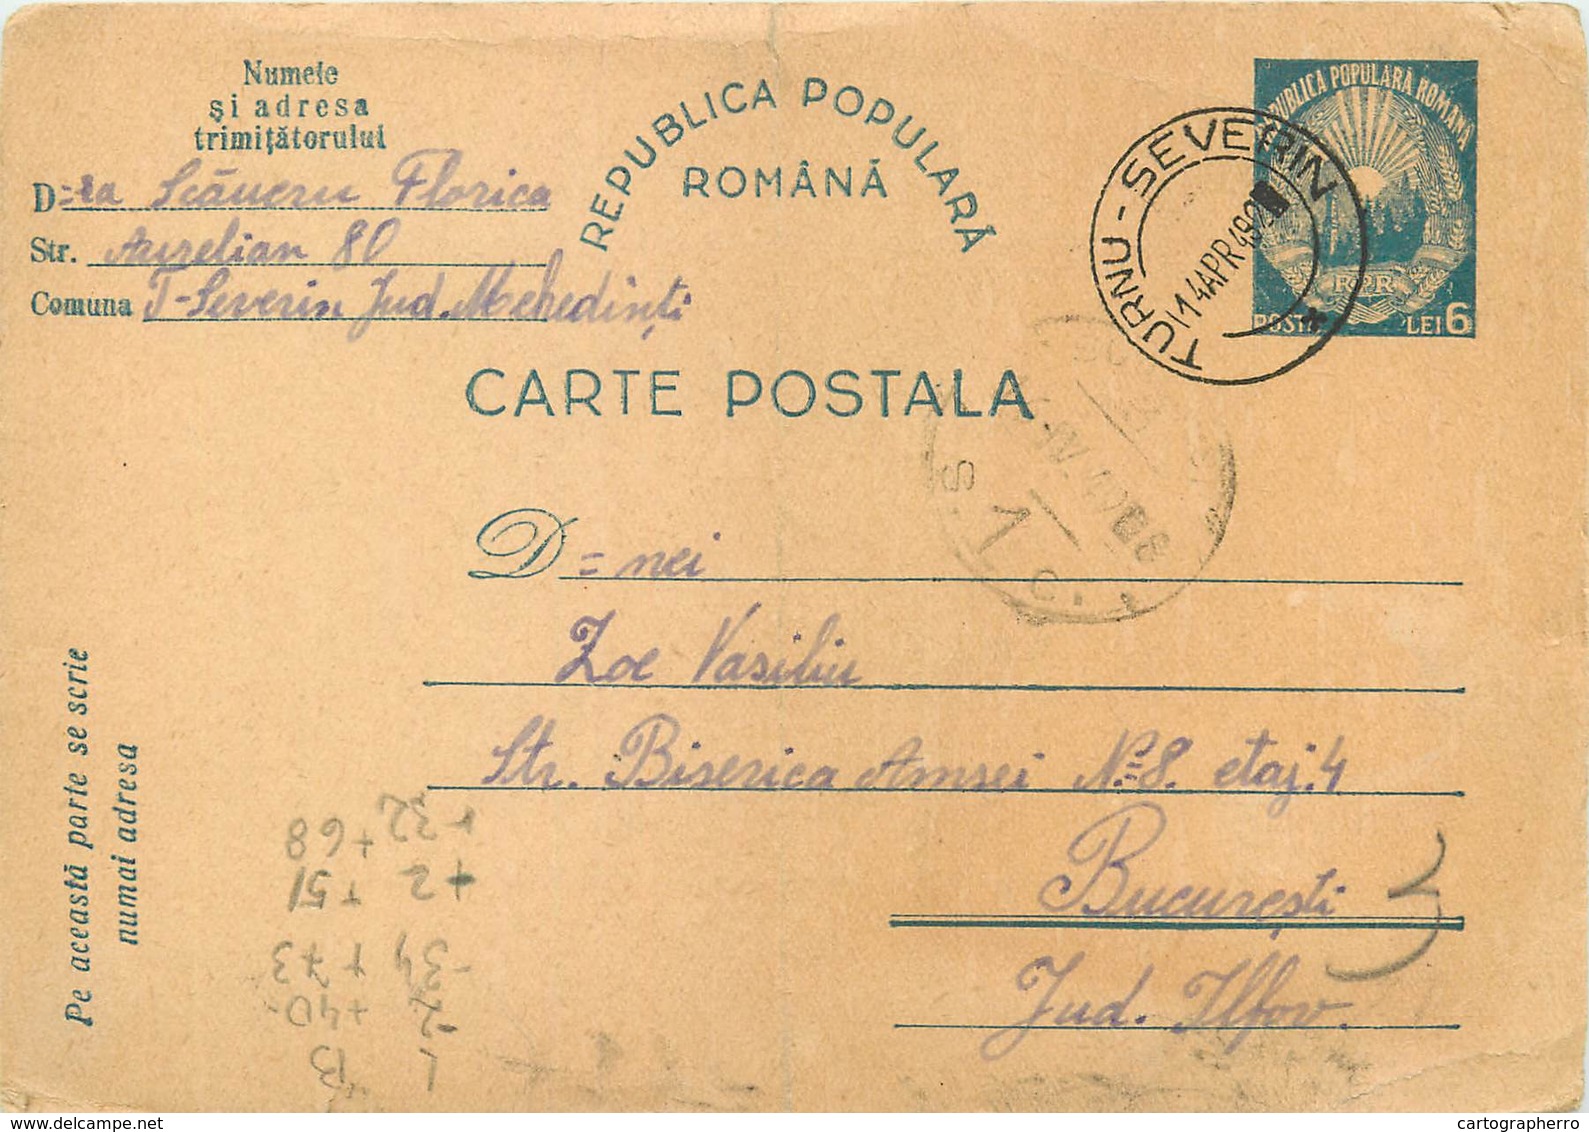 Numele
și adresa
trimițătorului
D=ra Scăueru Florica
Str. Aurelian 80
Comuna T-Severin Jud. Mehedinți
REPUBLICA POPULARĂ
ROMÂNĂ
REPUBLICA POPULARĂ ROMÂNĂ
RPR
POSTA LEI 6
TURNU-SEVERIN
14 APR 49
CARTE POSTALA
D=nei
Zoe Vasiliu
Str. Biserica Amsei No=8. etaj.4
București
Jud. Ilfov.
Pe această parte se scrie
numai adresa
L B
-2 +40
-34 +73
+2 +51
+32 +68
delcampe.net
cartographerro